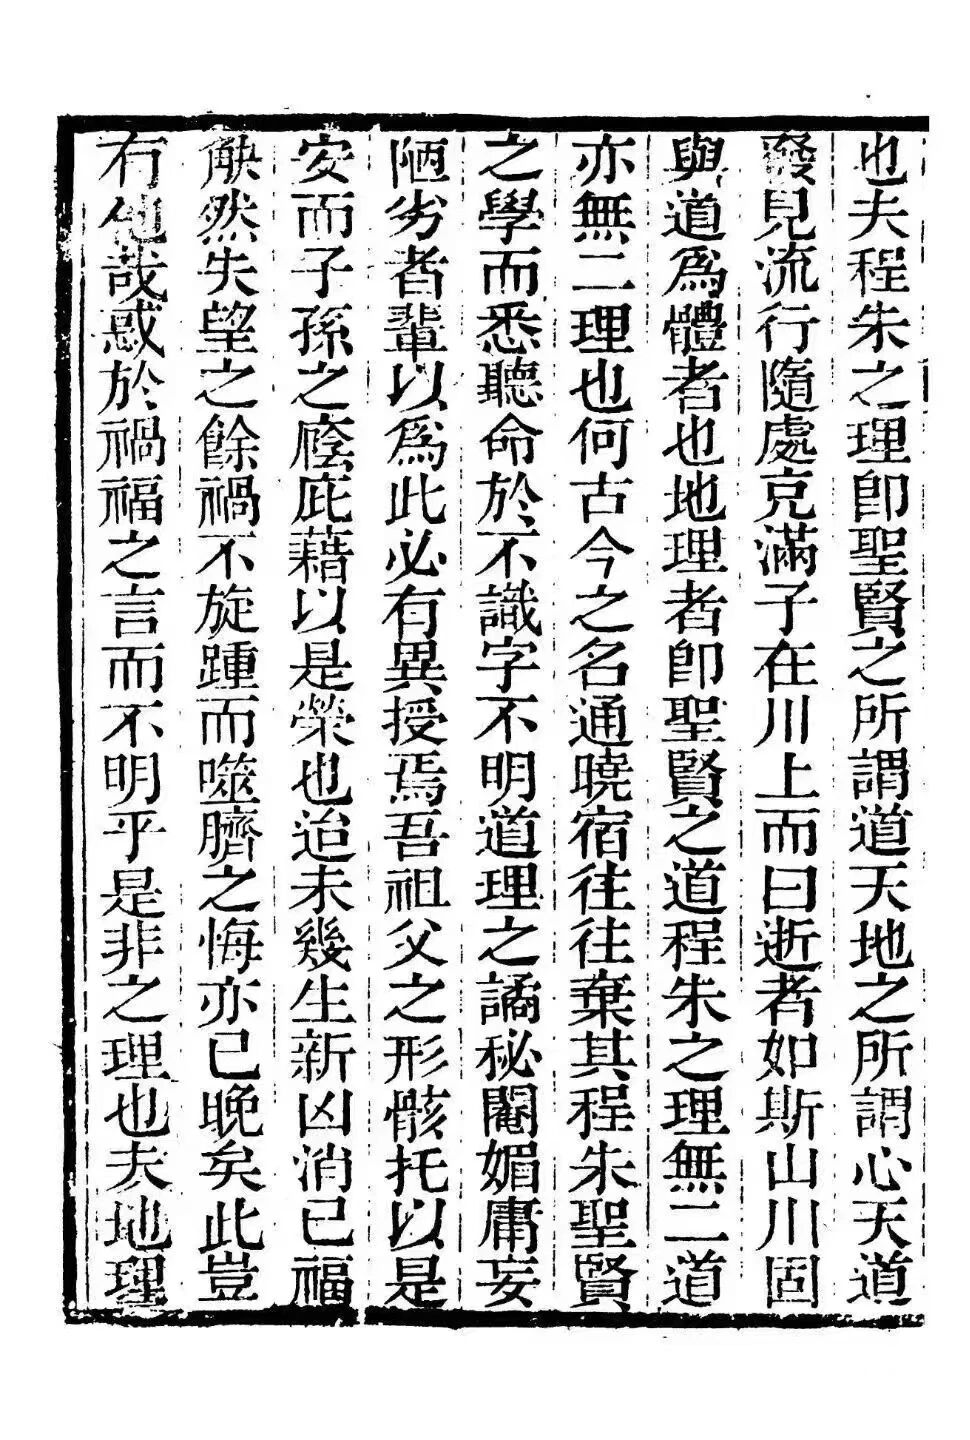 也夫程朱之理即聖賢之所謂道天地之所謂心天道
發見流行隨處充滿子在川上而曰逝者如斯山川固
與道為體者也地理者即聖賢之道程朱之理無二道
亦無二理也何古今之名通曉宿往往棄其程朱聖賢
之學而悉聽命於不識字不明道理之譎秘閹媚庸妄
陋劣者輩以為此必有異授焉吾祖父之形骸托以是
安而子孫之廕庇藉以是榮也迨未幾生新凶消已福
觖然失望之餘禍不旋踵而噬臍之悔亦已晚矣此豈
有他哉惑於禍福之言而不明乎是非之理也夫地理